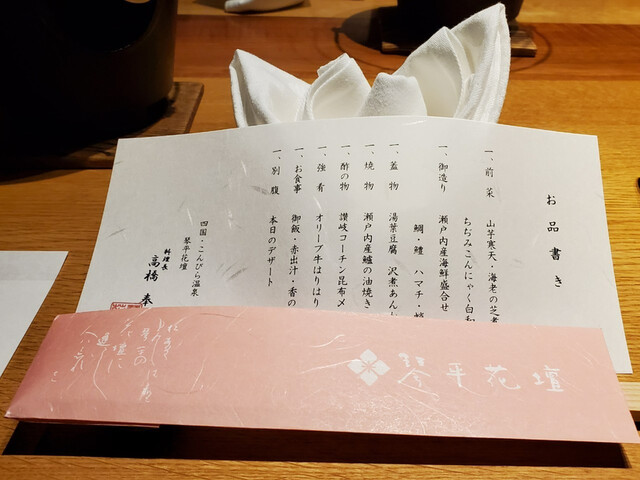 お品書き
一、前菜 山芋寒天・海老の芝煮
ちぢみこんにゃく白和
一、御造り 瀬戸内産海鮮盛合せ
鯛・鱧 ハマチ・
一、蓋物 湯葉豆腐 沢煮あん
一、焼物 瀬戸内産鱸の油焼き
一、酢の物 讃岐コーチン昆布〆
一、強肴 オリーブ牛はりはり
一、お食事 御飯・赤出汁・香の
一、別腹 本日のデザート
四国・こんぴら温泉
琴平花壇
料理長
高橋
琴平花壇